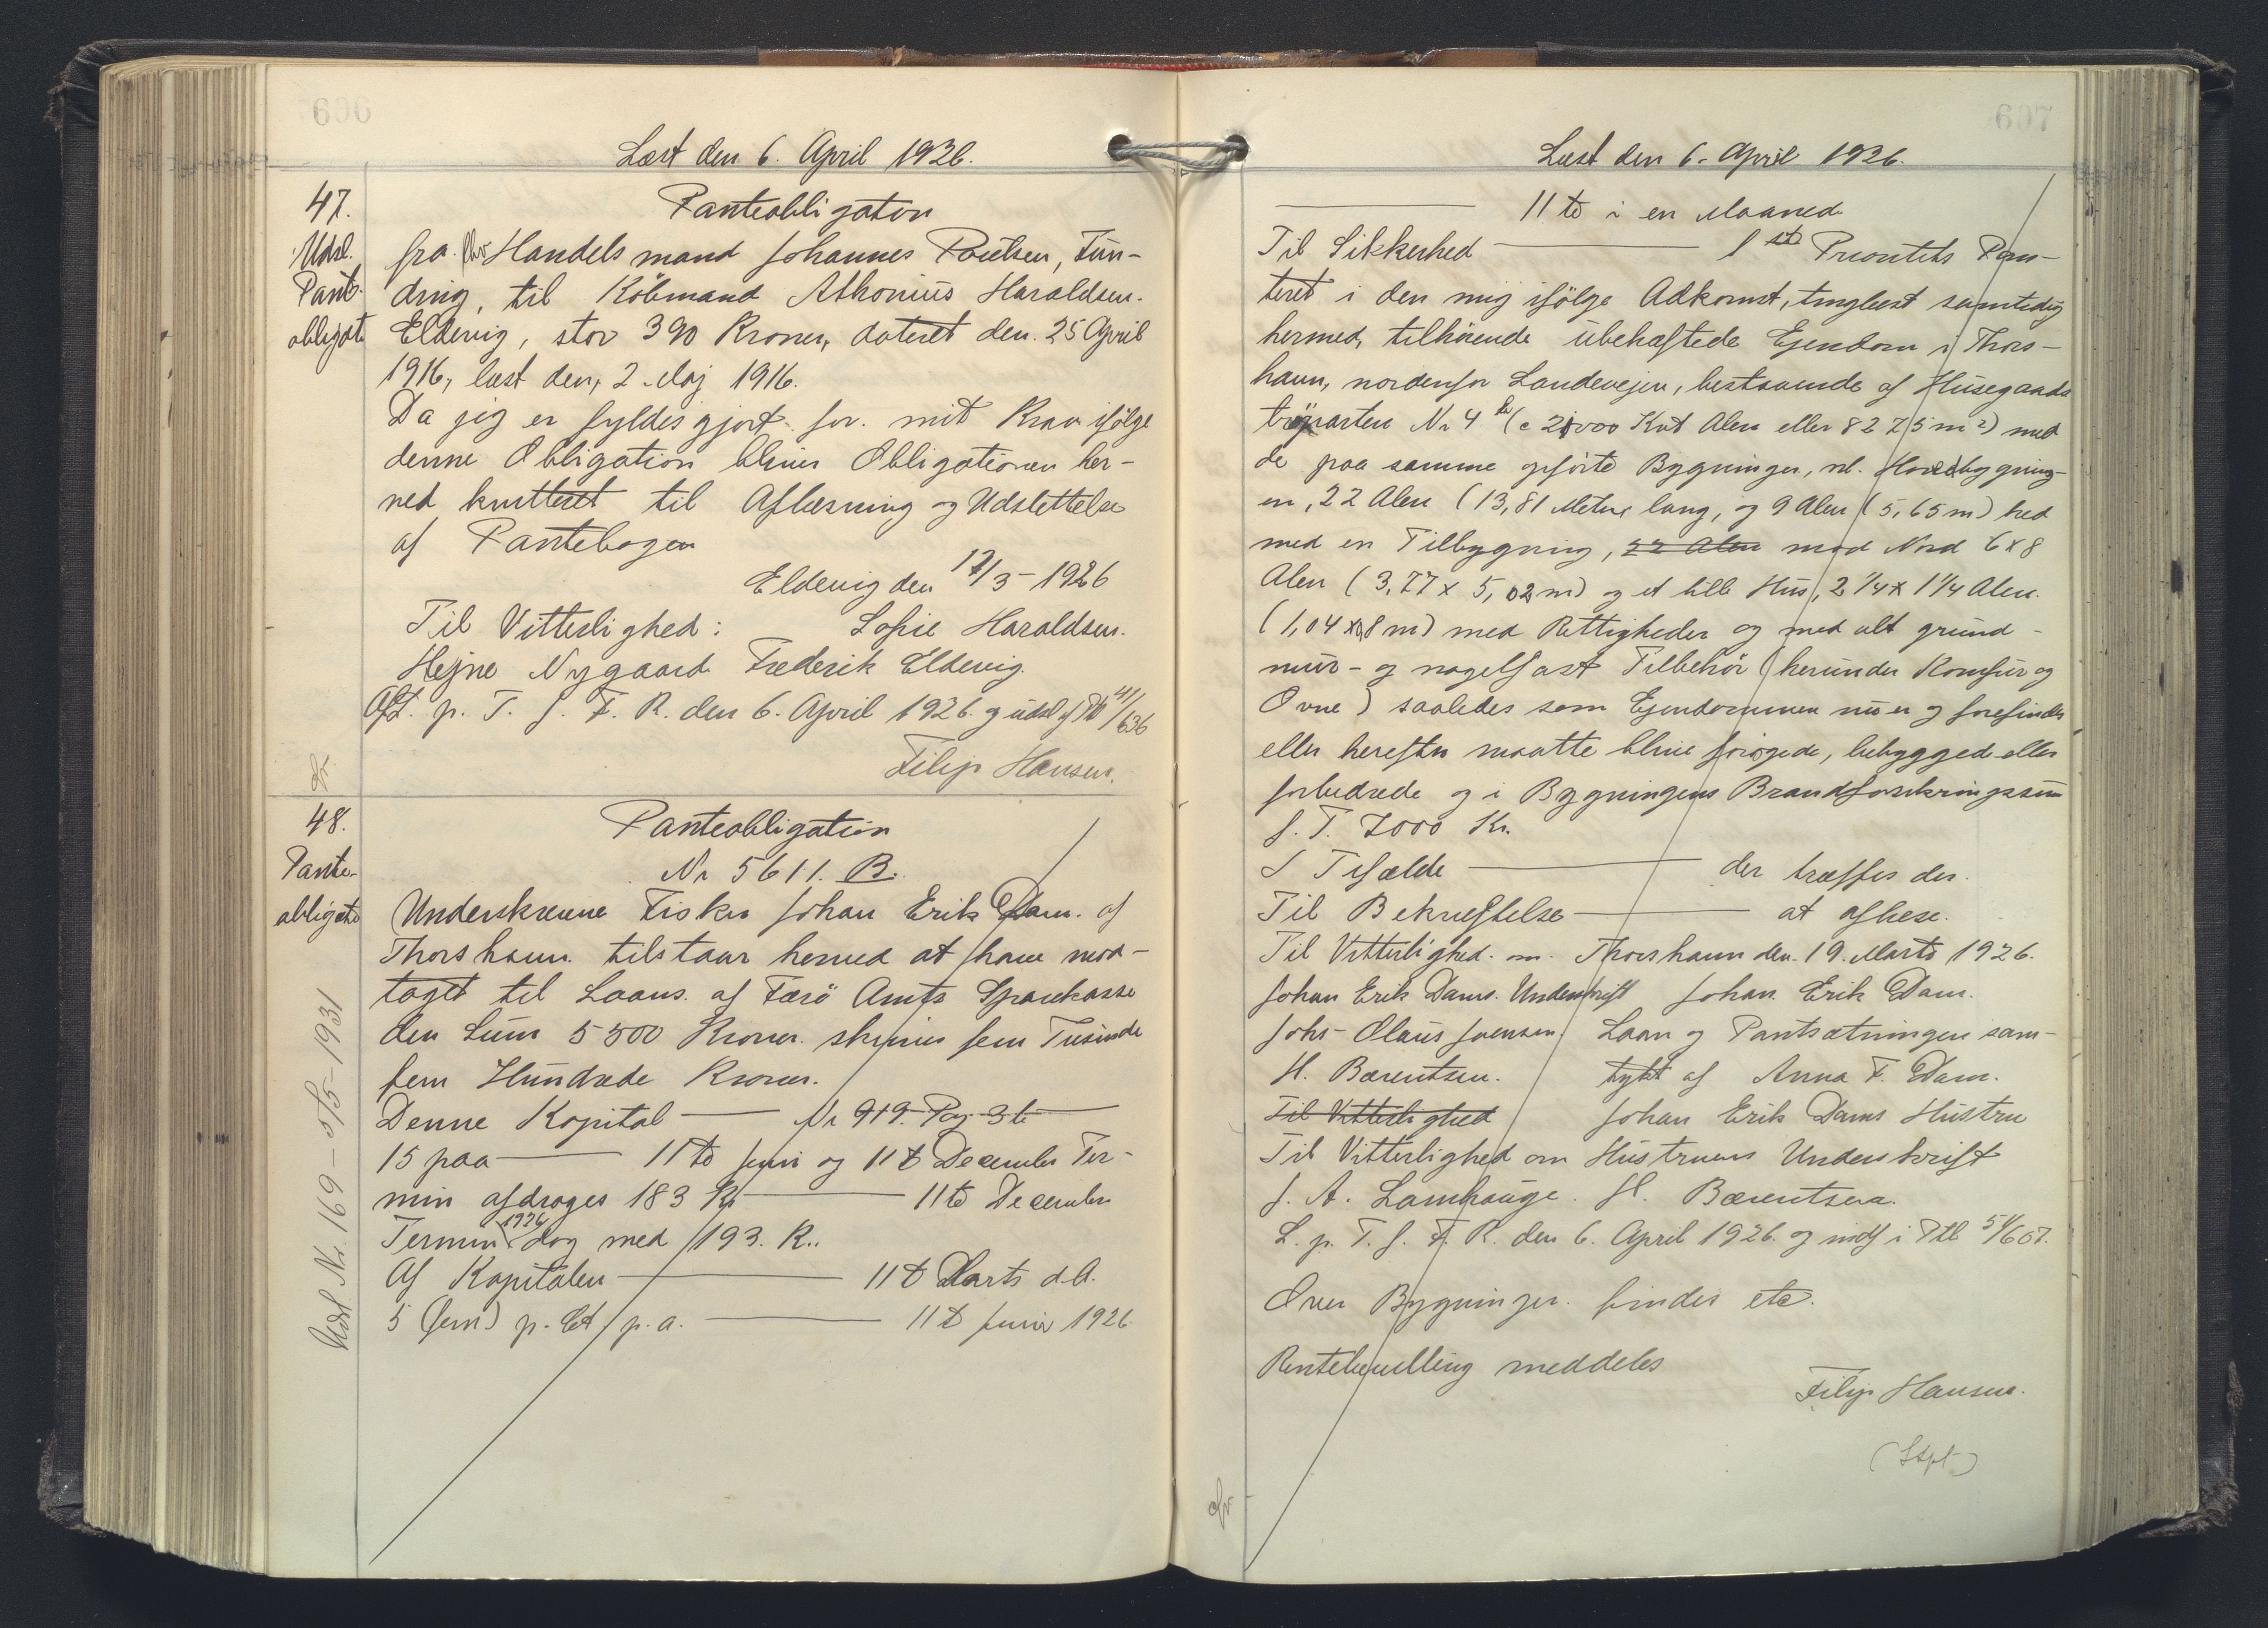 606
Læst den 6. April 1926.
47.
Udsl.
Pant-
obligat.
Panteobligation
fra Hr Handelsmand Johannes Poulsen, Fun-
ding, til Köbmand Athonius Haraldsen.
Eldevig, stor 390 Kroner, dateret den. 25 April
1916, læst den, 2. Maj 1916.
Da jeg er fyldesgjort for. mit Krav ifölge
denne Obligation bliver Obligationen her-
ved kvitteret til Aflæsning og Udslettelse
af Pantebogen
Eldevig den 17/3-1926
Til Vitterlighed: Sofie Haraldsen.
Hejne Nygaard Frederik Eldevig.
Afl. p. T. f. F. R. den 6. April 1926. og udsl af Ptb 41/636
Filip Hansen.
48.
Pante-
obligatio
Panteobligation
Nr 5611. B.
Underskrevne Fisker Johan Erik Dam. af
Thorshavn. tilstaar herved at have mod-
taget til Laans. af Færö Amts Sparekasse
den Sum 5500 Kroner. skriver fem Tusinde
fem Hundrede Kroner.
Denne Kapital — Nr 919. Pag 3 te —
15 paa — 11te Juni og 11te December Ter-
min afdrages 183 Kr — 11te December
Termin 1926 dog med 193. K..
Af Kapitalen — 11te Marts d. A.
5 (fem) p. Ct. p. a. — 11te Juni 1926
Udsl. Nr. 169 - 5/5-1931
607
Læst den 6. April 1926.
— 11te i en Maaned.
Til Sikkerhed — 1ste Prioritets Pan-
teret i den mig ifölge Adkomst, tinglæst samtidig
hermed, tilhörende ubehæftede Ejendom i Thors-
havn, nordenfor Landevejen, bestaaende af Husegaards
tröparten Nr 4 (c 21000 Kvt Alen eller 8275 m²) med
de paa samme opförte Bygninger, nl. Hovedbygning-
en, 22 Alen (13,81 Meter lang, og 9 Alen (5,65 m) bred
med en Tilbygning, 22 Alen mod Nord 6 x 8
Alen (3,77 x 5,02 m) og et lille Hus, 2 1/4 x 1 1/4 Alen.
(1,04 x 0,8 m) med Rettigheder og med alt grund-
mur- og nagelfast Tilbehör (herunder Komfur og
Ovne) saaledes som Ejendommen nu er og forefindes
eller herefter maatte blive forögede, bebyggede eller
forbedrede og i Bygningens Brandforsikringssum
f. T. 7000 Kr.
I Tilfælde — der træffes der.
Til Bekræftelse — at aflæse.
Til Vitterlighed. om. Thorshavn den. 19. Marts 1926.
Johan Erik Dams. Underskrift Johan Erik Dam.
Johs- Olaus Joensen Laan og Pantsætningen sam-
H. Barentsen. tykt af Anna F. Dam.
Til Vitterlighed Johan Erik Dams Hustru
Til Vitterlighed om Hustruens Underskrift
J. A. Lamhauge. H. Barentsen.
L. p. T. f. F. R. den 6. April 1926. og indf i Ptb 54/607.
Over Bygninger. findes etc.
Rentebevilling meddeles
Filip Hansen.
(Stpl)